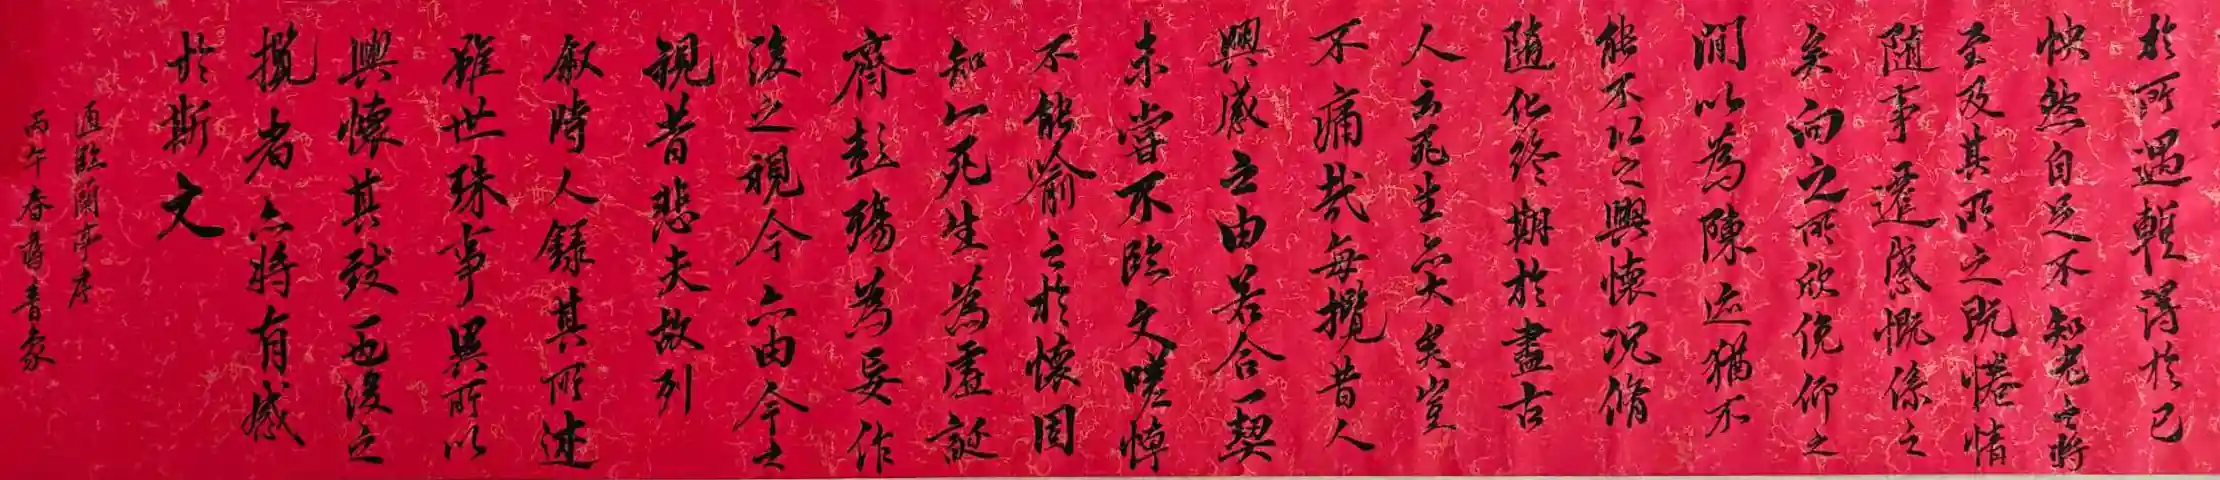 於所遇暫得於己
怏然自足不知老之將
至及其所之既惓情
隨事遷感慨係之
矣向之所欣俛仰之
閒以為陳迹猶不
能不以之興懷況脩
隨化終期於盡古
人云死生亦大矣豈
不痛哉每攬昔人
興感之由若合一契
未嘗不臨文嗟悼
不能喻之於懷固
知一死生為虛誕
齊彭殤為妄作
後之視今亦由今之
視昔悲夫故列
叙時人錄其所述
雖世殊事異所以
興懷其致一也後之
攬者亦將有感
於斯文
臨蘭亭序
丙午春書